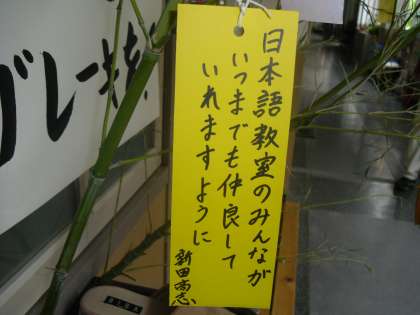 日本語教室のみんなが
いつまでも仲良して
いれますように
新田高志